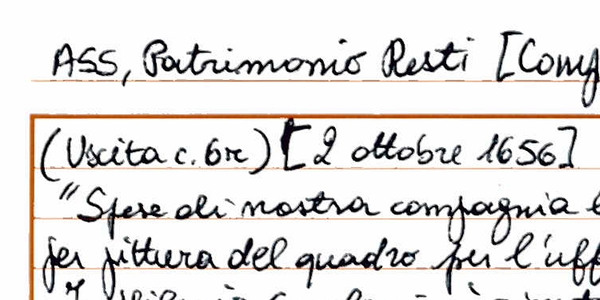 ASS, Patrimonio Resti [Comp
(Uscita c. 6r) [2 ottobre 1656]
"Spese di nostra compagnia
per pittura del quadro per l'uff